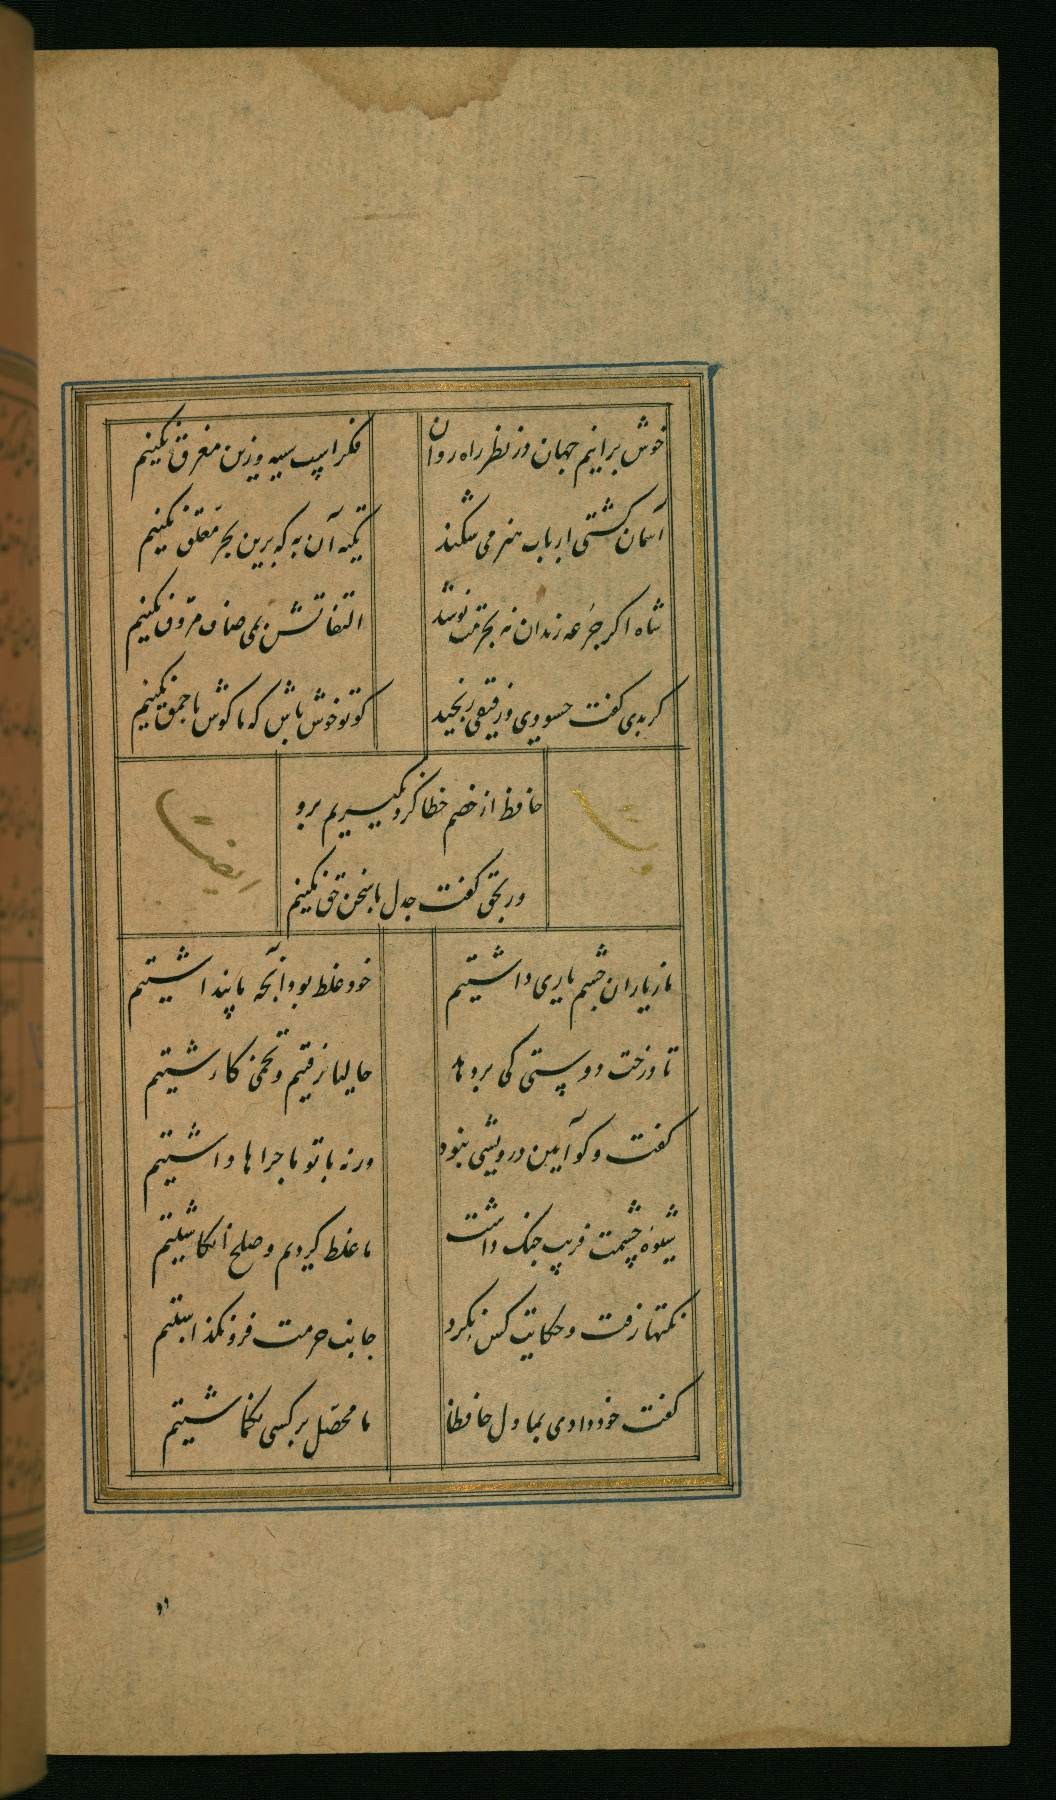 خوش برانیم جهان در نظر راه روان
فکر اسب سیه و زین مغرق نکنیم
آسمان کشتی ارباب هنر می شکند
تکیه آن به که برین بحر معلق نکنیم
شاه اکر جرعه رندان نه بحرمت نوشد
التفاتش بمی صاف مروق نکنیم
کر بدی کفت حسودی و رفیقی رنجید
کو تو خوش باش که ما کوش باحمق نکنیم
حافظ ار خصم خطا کرد نکیریم برو
ور بحق کفت جدل با سخن حق نکنیم
وله
ایضا
ما ز یاران چشم یاری داشتیم
خود غلط بود آنچه ما پنداشتیم
تا درخت دوستی کی بر دهد
حالیا رفتیم و تخمی کاشتیم
کفت و کو آیین درویشی نبود
ورنه با تو ماجراها داشتیم
شیوه چشمت فریب جنک داشت
ما غلط کردیم و صلح انکاشتیم
نکتها رفت و حکایت کس نکرد
جانب حرمت فرو نکذاشتیم
کفت خود دادی بما دل حافظا
ما محصل بر کسی نکماشتیم